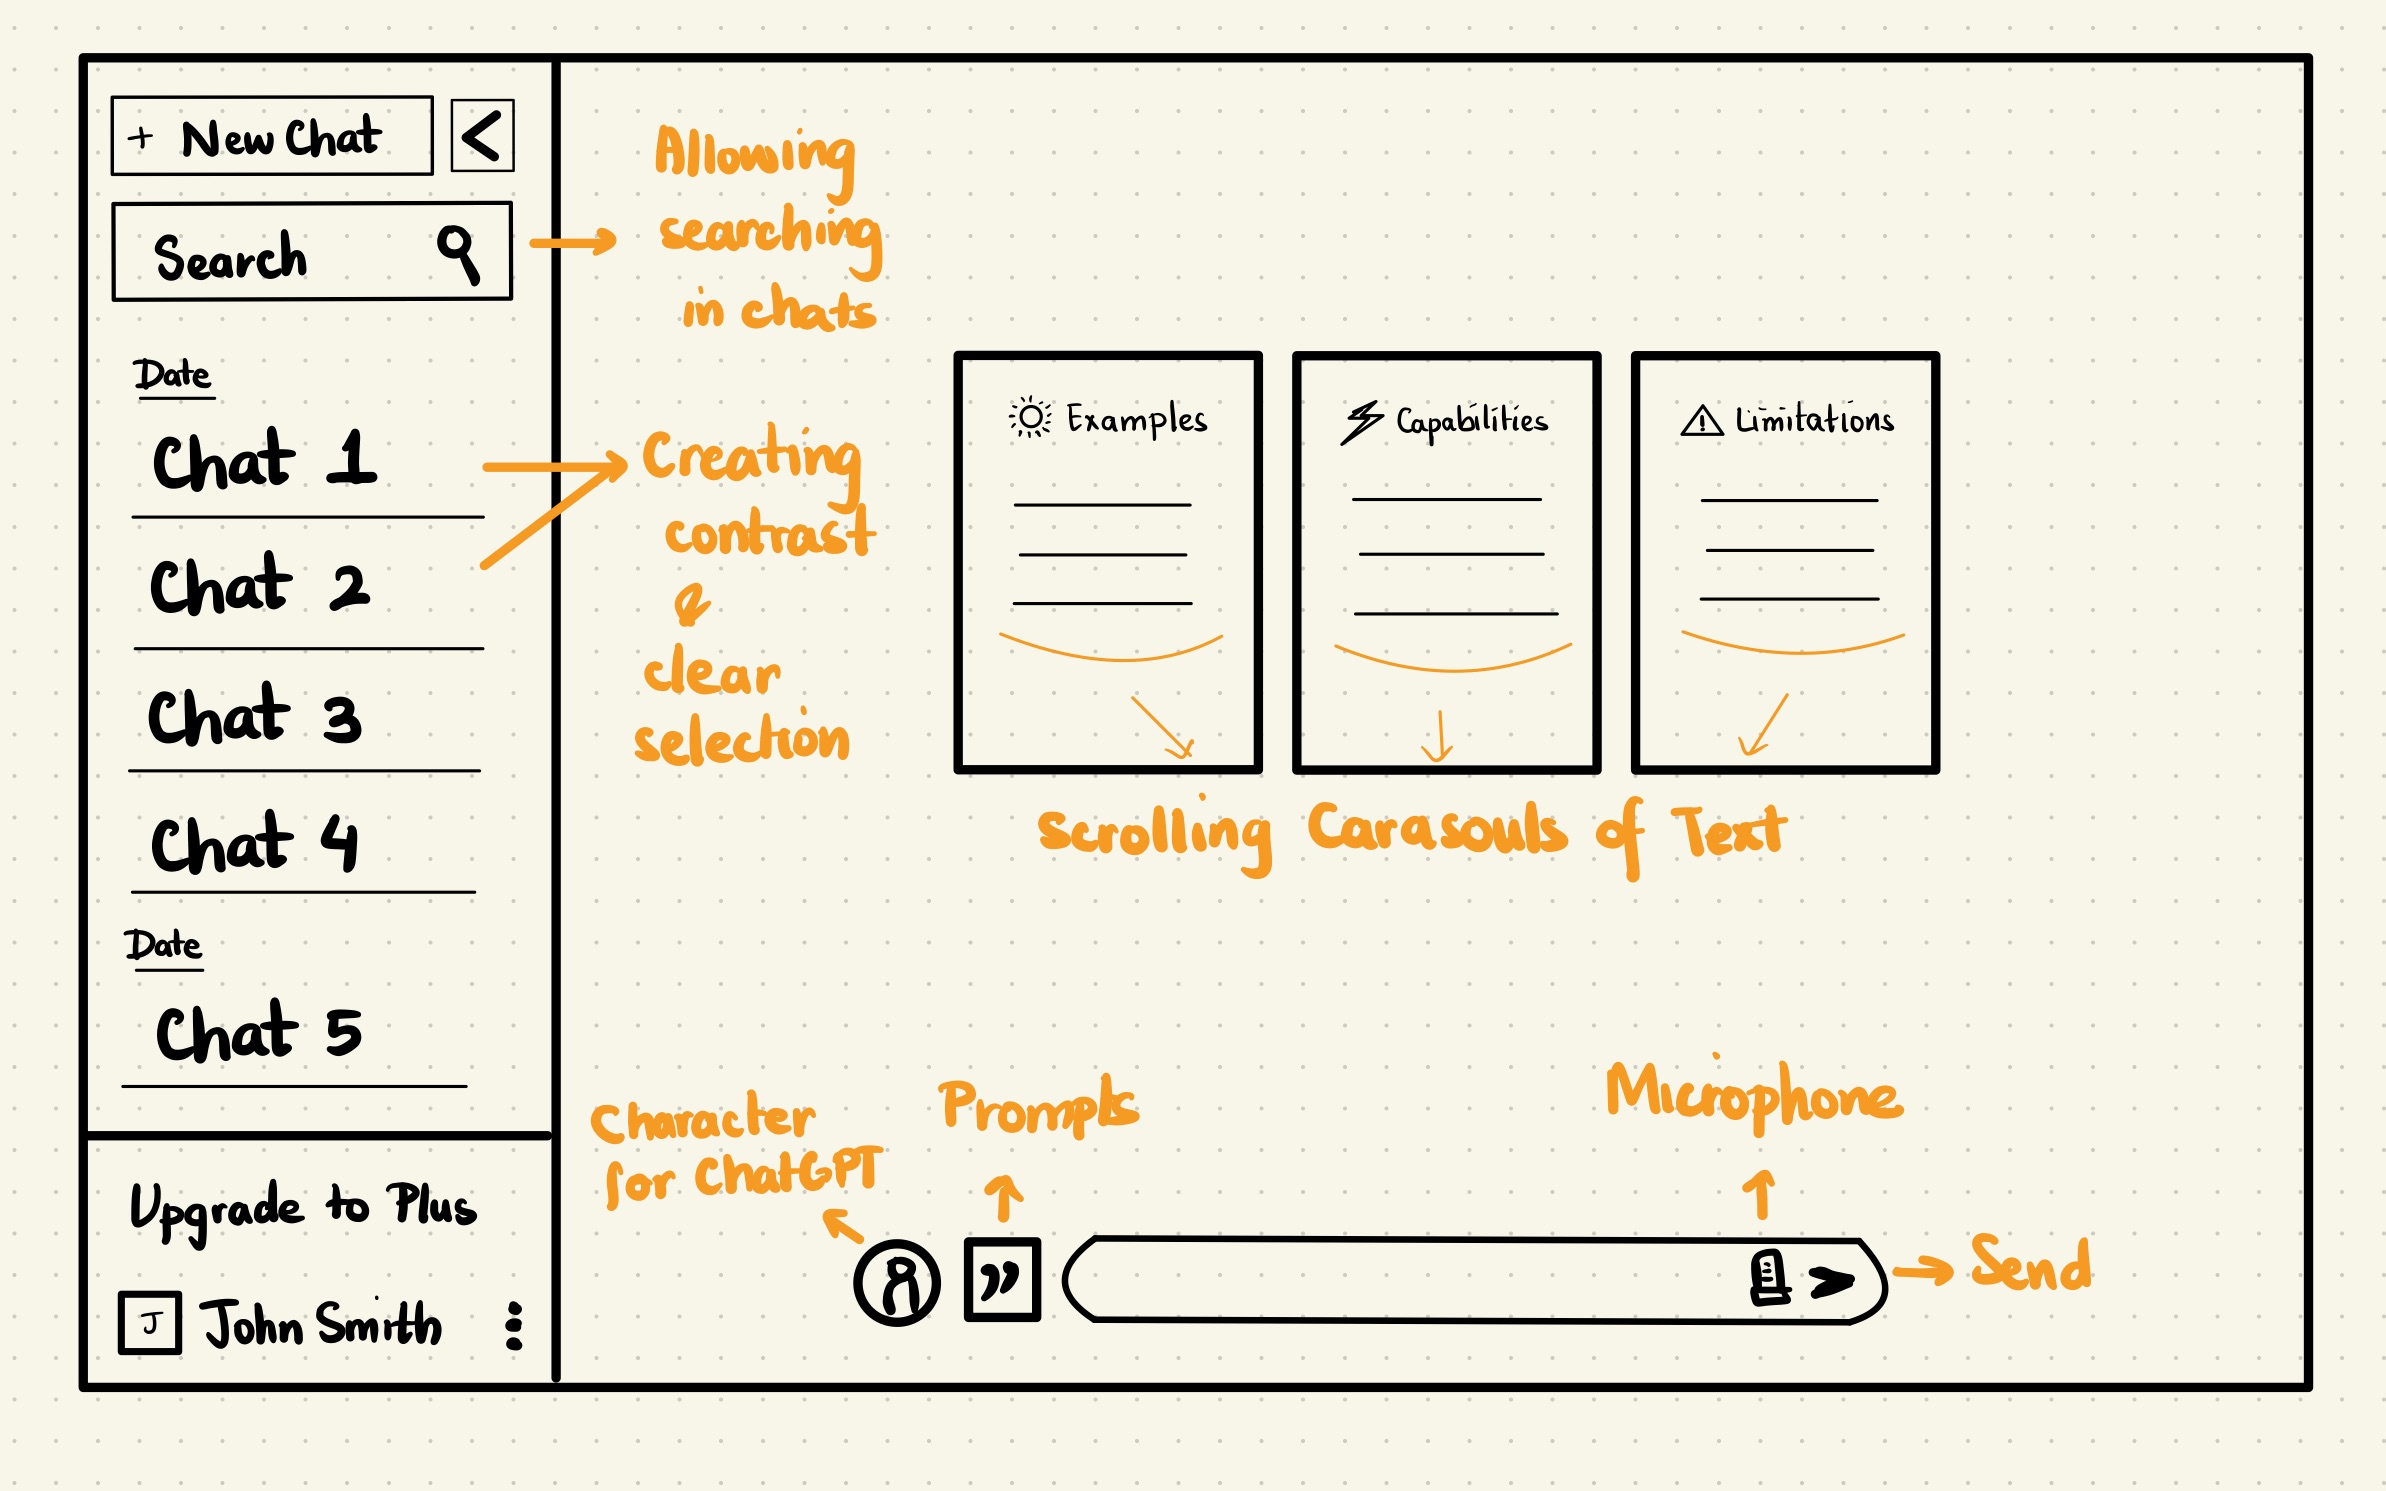 + New Chat <
Search
Date
Chat 1
Chat 2
Chat 3
Chat 4
Date
Chat 5
Upgrade to Plus
J John Smith
Allowing
searching
in chats
Creating
contrast
&
clear
selection
Examples
Capabilities
! Limitations
Scrolling Carasouls of Text
Character
for ChatGPT
Prompts
”
Microphone
Send